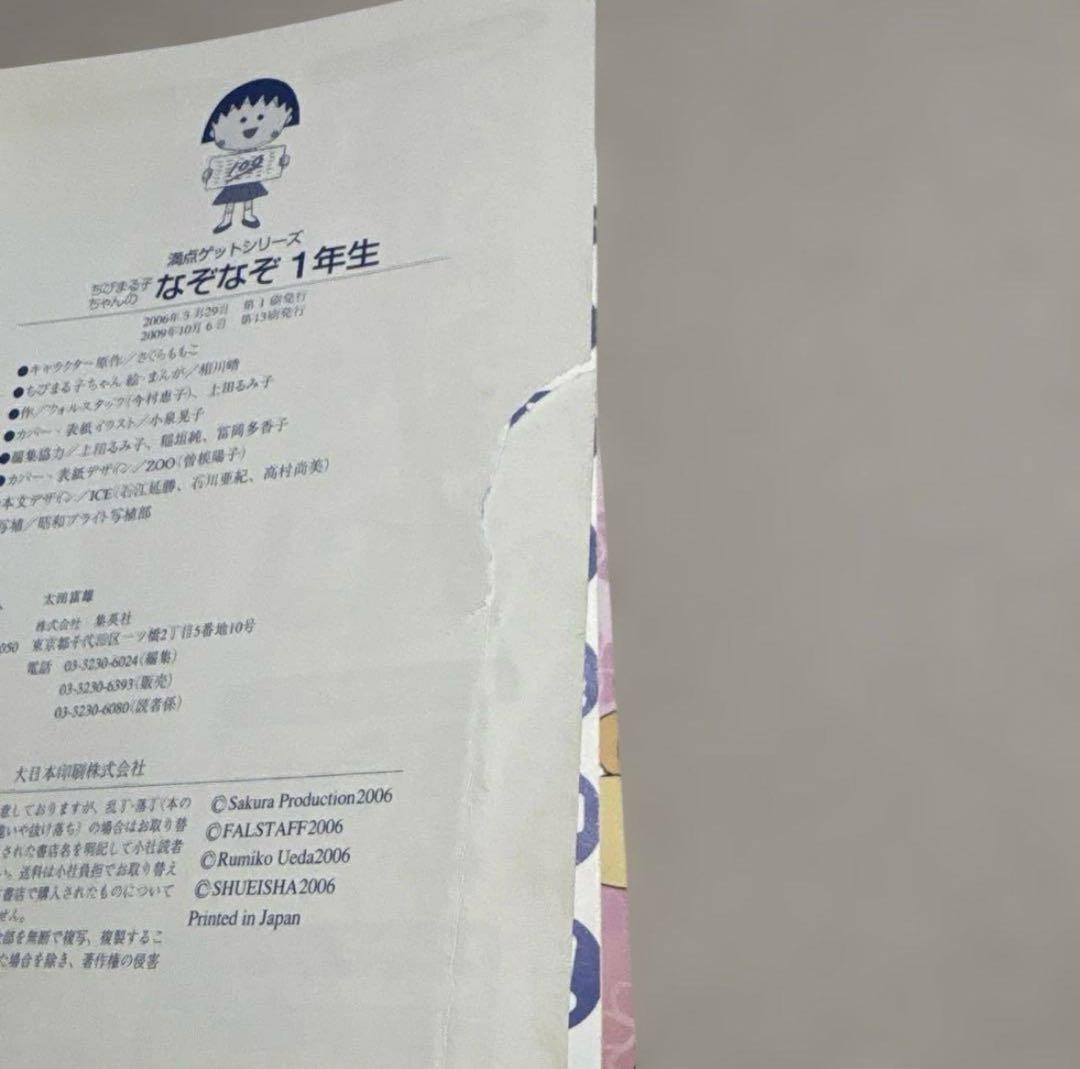 100
満点ゲットシリーズ
ちびまる子ちゃんの なぞなぞ1年生
2006年3月29日 第1刷発行
2009年10月6日 第13刷発行
●キャラクター原作／さくらももこ
●ちびまる子ちゃん 絵・まんが／相川晴
●作／フォルスタッフ(今村恵子)、上田るみ子
●カバー・表紙イラスト／小泉晃子
●編集協力／上田るみ子、稲垣純、富岡多香子
●カバー・表紙デザイン／ZOO(曽根陽子)
本文デザイン／ICE(石江延勝、石川亜紀、高村尚美)
写植／昭和ブライト写植部
太田富雄
株式会社 集英社
050 東京都千代田区一ツ橋2丁目5番地10号
電話 03-3230-6024(編集)
03-3230-6393(販売)
03-3230-6080(読者係)
大日本印刷株式会社
意しておりますが、乱丁・落丁(本の
違いや抜け落ち)の場合はお取り替
された書店名を明記して小社読者
い。送料は小社負担でお取り替え
書店で購入されたものについて
せん。
部を無断で複写、複製するこ
た場合を除き、著作権の侵害
©Sakura Production2006
©FALSTAFF2006
©Rumiko Ueda2006
©SHUEISHA2006
Printed in Japan